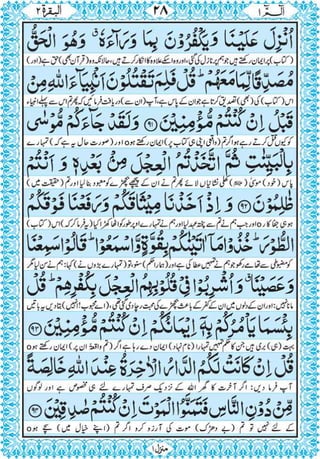 الٓمّٓ ١
٢٨
البقرة ٢
اُنْزِلَ عَلَيْنَا وَيَكْفُرُوْنَ بِمَا وَرَآءَهٗ ۗ وَهُوَ الْحَقُّ
(کتاب) پر ایمان رکھتے ہیں جو ہم پر نازل کی گئی، اور وہ اس کے علاوہ کا انکار کرتے ہیں، حالانکہ وہ (قرآن بھی) حق ہے (اور)
مُصَدِّقًا لِّمَا مَعَهُمْ ؕ قُلْ فَلِمَ تَقْتُلُوْنَ اَنْۢبِيَآءَ اللّٰهِ مِنْ
اس (کتاب) کی (بھی) تصدیق کرتا ہے جو ان کے پاس ہے، آپ (ان سے) دریافت فرمائیں کہ پھر تم اس سے پہلے انبیاء
قَبْلُ اِنْ كُنْتُمْ مُّؤْمِنِيْنَ ﴿۹۱﴾ وَلَقَدْ جَآءَكُمْ مُّوْسٰى
کو کیوں قتل کرتے رہے ہو اگر تم (واقعی اپنی ہی کتاب پر) ایمان رکھتے ہو o اور (صورت حال یہ ہے کہ) تمہارے
بِالْبَيِّنٰتِ ثُمَّ اتَّخَذْتُمُ الْعِجْلَ مِنْۢ بَعْدِهٖ وَاَنْتُمْ
پاس (خود) موسیٰ (علیہ السلام) کھلی نشانیاں لائے پھر تم نے ان کے پیچھے بچھڑے کو معبود بنا لیا اور تم (حقیقت میں)
ظٰلِمُوْنَ ﴿۹۲﴾ وَاِذْ اَخَذْنَا مِيْثَاقَكُمْ وَرَفَعْنَا فَوْقَكُمُ
ہو ہی جفا کار o اور جب ہم نے تم سے پختہ عہد لیا اور ہم نے تمہارے اوپر طور کو اٹھا کھڑا کیا (یہ فرما کر کہ) اس (کتاب)
الطُّوْرَ ؕ خُذُوْا مَاۤ اٰتَيْنٰكُمْ بِقُوَّةٍ وَّاسْمَعُوْا ؕ قَالُوْا سَمِعْنَا
کو مضبوطی سے تھامے رکھو جو ہم نے تمہیں عطا کی ہے اور (ہمارا حکم) سنو، تو (تمہارے بڑوں نے) کہا: ہم نے سن لیا مگر
وَعَصَيْنَا ۗ وَاُشْرِبُوْا فِیْ قُلُوْبِهِمُ الْعِجْلَ بِكُفْرِهِمْ ؕ قُلْ
مانا نہیں، اور ان کے دلوں میں ان کے کفر کے باعث بچھڑے کی محبت رچا دی گئی تھی، (اے محبوب! انہیں) بتا دیں یہ باتیں
بِئْسَمَا يَاْمُرُكُمْ بِهٖۤ اِيْمَانُكُمْ اِنْ كُنْتُمْ مُّؤْمِنِيْنَ ﴿۹۳﴾
بہت (ہی) بری ہیں جن کا حکم تمہیں تمہارا (نام نہاد) ایمان دے رہا ہے اگر (تم واقعۃً ان پر) ایمان رکھتے ہو o
قُلْ اِنْ كَانَتْ لَكُمُ الدَّارُ الْاٰخِرَةُ عِنْدَ اللّٰهِ خَالِصَةً
آپ فرما دیں: اگر آخرت کا گھر اللہ کے نزدیک صرف تمہارے لئے ہی مخصوص ہے اور لوگوں
مِّنْ دُوْنِ النَّاسِ فَتَمَنَّوُا الْمَوْتَ اِنْ كُنْتُمْ صٰدِقِيْنَ ﴿۹۴﴾
کے لئے نہیں تو تم (بے دھڑک) موت کی آرزو کرو اگر تم (اپنے خیال میں) سچے ہو o
منزل ١